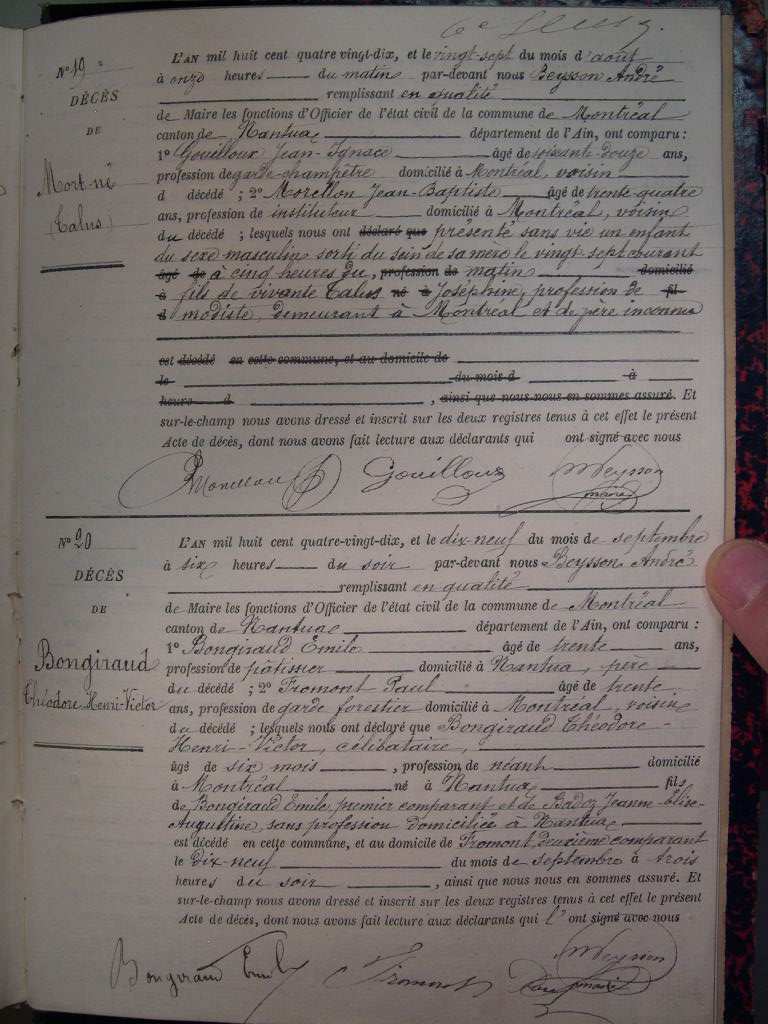 N° 19
DÉCÈS
DE
Mort-né
(Talus)
L'AN mil huit cent quatre vingt-dix, et le vingt-sept du mois d'août
à onze heures du matin par-devant nous Beysson André
remplissant en qualité
de Maire les fonctions d'Officier de l'état civil de la commune de Montréal
canton de Nantua département de l'Ain, ont comparu :
1° Gouilloux Jean-Ignace âgé de soixante-douze ans,
profession de garde-champêtre domicilié à Montréal, voisin
d décédé ; 2° Morellon Jean-Baptiste âgé de trente-quatre
ans, profession de instituteur domicilié à Montréal, voisin
du décédé ; lesquels nous ont déclaré que présenté sans vie un enfant
du sexe masculin sorti du sein de sa mère le vingt sept courant
âgé de à cinq heures du, profession de matin domicilié
à fils de vivante Talus né à Joséphine, profession de fil
d modiste, demeurant à Montréal et de père inconnu
est décédé en cette commune, et au domicile de
le du mois d à
heure d , ainsi que nous nous en sommes assuré. Et
sur-le-champ nous avons dressé et inscrit sur les deux registres tenus à cet effet le présent
Acte de décès, dont nous avons fait lecture aux déclarants qui ont signé avec nous
Gouilloux Beysson
maire
N° 20
DÉCÈS
DE
Bongiraud
Théodore-Henri-Victor
L'AN mil huit cent quatre-vingt-dix, et le dix-neuf du mois de septembre
à six heures du soir par-devant nous Beysson André
remplissant en qualité
de Maire les fonctions d'Officier de l'état civil de la commune de Montréal
canton de Nantua département de l'Ain, ont comparu :
1° Bongiraud Emile âgé de trente ans,
profession de pâtissier domicilié à Nantua, père
du décédé ; 2° Fromont Paul âgé de trente
ans, profession de garde forestier domicilié à Montréal, voisin
du décédé ; lesquels nous ont déclaré que Bongiraud Théodore-
Henri-Victor, célibataire,
âgé de six mois , profession de néant domicilié
à Montréal né à Nantua fils
de Bongiraud Emile, premier comparant et de Badoz Jeanne-Élise-
Augustine, sans profession domiciliée à Nantua
est décédé en cette commune, et au domicile de Fromont deuxième comparant
le dix-neuf du mois de septembre à trois
heures du soir , ainsi que nous nous en sommes assuré. Et
sur-le-champ nous avons dressé et inscrit sur les deux registres tenus à cet effet le présent
Acte de décès, dont nous avons fait lecture aux déclarants qui l'ont signé avec nous
Bongiraud Emile Fromont Beysson
maire